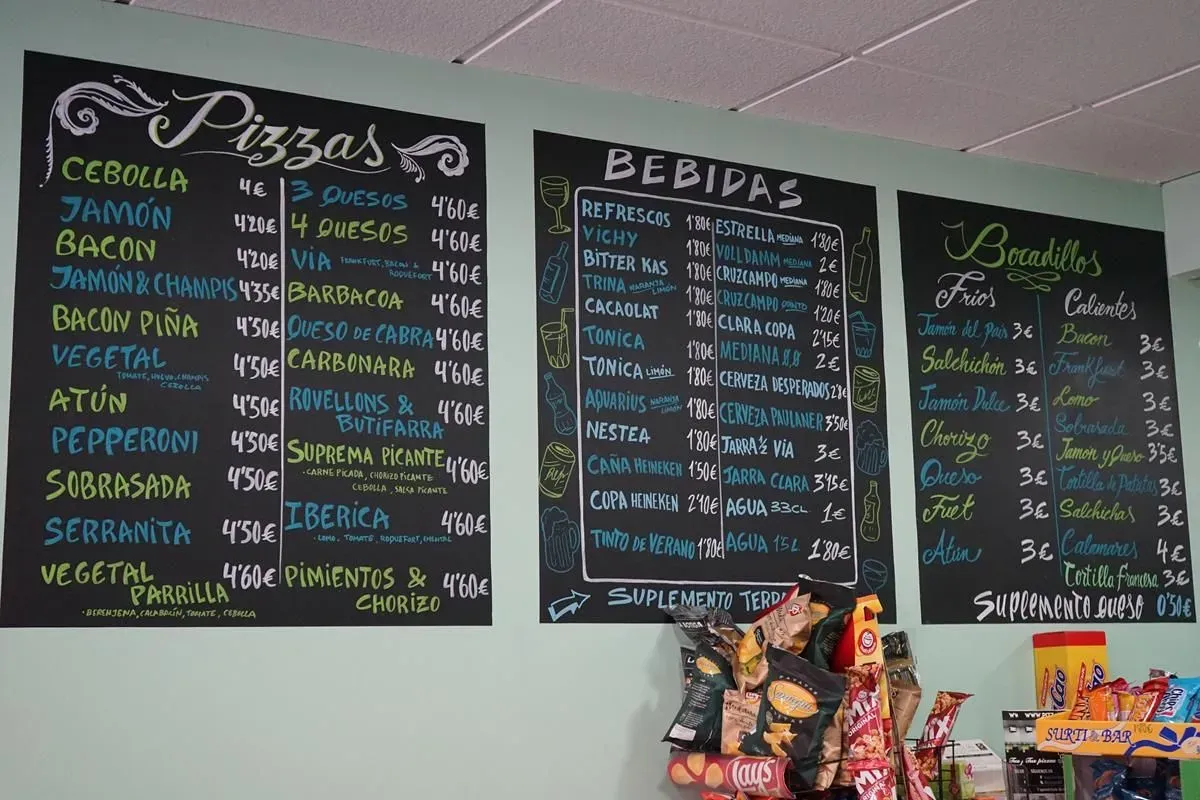 Pizzas
CEBOLLA 4€
JAMÓN 4'20€
BACON 4'20€
JAMÓN & CHAMPIS 4'35€
BACON PIÑA 4'50€
VEGETAL 4'50€
TOMATE, HUEVO, CHAMPIS
CEBOLLA
ATÚN 4'50€
PEPPERONI 4'50€
SOBRASADA 4'50€
SERRANITA 4'50€
VEGETAL
PARRILLA 4'60€
• BERENJENA, CALABACÍN, TOMATE, CEBOLLA
3 QUESOS 4'60€
4 QUESOS 4'60€
VIA FRANKFURT, BACON &
ROQUEFORT 4'60€
BARBACOA 4'60€
QUESO DE CABRA 4'60€
CARBONARA 4'60€
ROVELLONS &
BUTIFARRA 4'60€
SUPREMA PICANTE 4'60€
• CARNE PICADA, CHORIZO PICANTE
CEBOLLA, SALSA PICANTE
IBERICA 4'60€
• LOMO, TOMATE, ROQUEFORT, EMENTAL
PIMIENTOS &
CHORIZO 4'60€
BEBIDAS
REFRESCOS 1'80€
VICHY
BITTER KAS 1'80€
TRINA NARANJA
LIMÓN 1'80€
CACAOLAT 1'80€
TONICA 1'80€
TONICA LIMÓN 1'80€
AQUARIUS NARANJA
LIMÓN 1'80€
NESTEA 1'80€
CAÑA HEINEKEN 1'50€
COPA HEINEKEN 2'10€
TINTO DE VERANO 1'80€
ESTRELLA MEDIANA 1'80€
VOLLDAMM MEDIANA 2€
CRUZCAMPO MEDIANA 1'80€
CRUZCAMPO QUINTO 1'20€
CLARA COPA 2'15€
MEDIANA 0,0 2€
CERVEZA DESPERADOS 2'8€
CERVEZA PAULANER 3'50€
JARRA ½ VIA 3€
JARRA CLARA 3'15€
AGUA 33CL 1€
AGUA 1'5L 1'80€
SUPLEMENTO
Bocadillos
Frios
Jamón del País 3€
Salchichón 3€
Jamón Dulce 3€
Chorizo 3€
Queso 3€
Fuet 3€
Atún 3€
Calientes
Bacon 3€
Frankfurt 3€
Lomo 3€
Sobrasada 3€
Jamon y Queso 3'5€
Tortilla de Patatas 3€
Salchichas 3€
Calamares 4€
Tortilla Francesa 3€
SUPLEMENTO QUESO 0'50€
Lay's
MIX
ORIGINAL
MIX
ORIGINAL
SURTI BAR